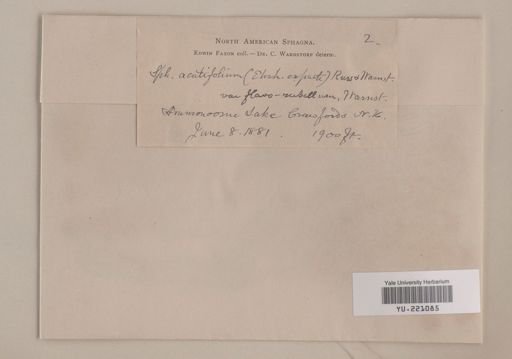 North American Sphagna.
2.
Edwin Faxon coll. — Dr. C. Warnstorf determ.
Sph. acutifolium (Ehrh. ex parte) Russ & Warnst.
var flavo-rubellum, Warnst.
Ammonoosuc Lake Crawfords N.H.
June 8. 1881. 1900 ft.
Yale University Herbarium
YU.221085